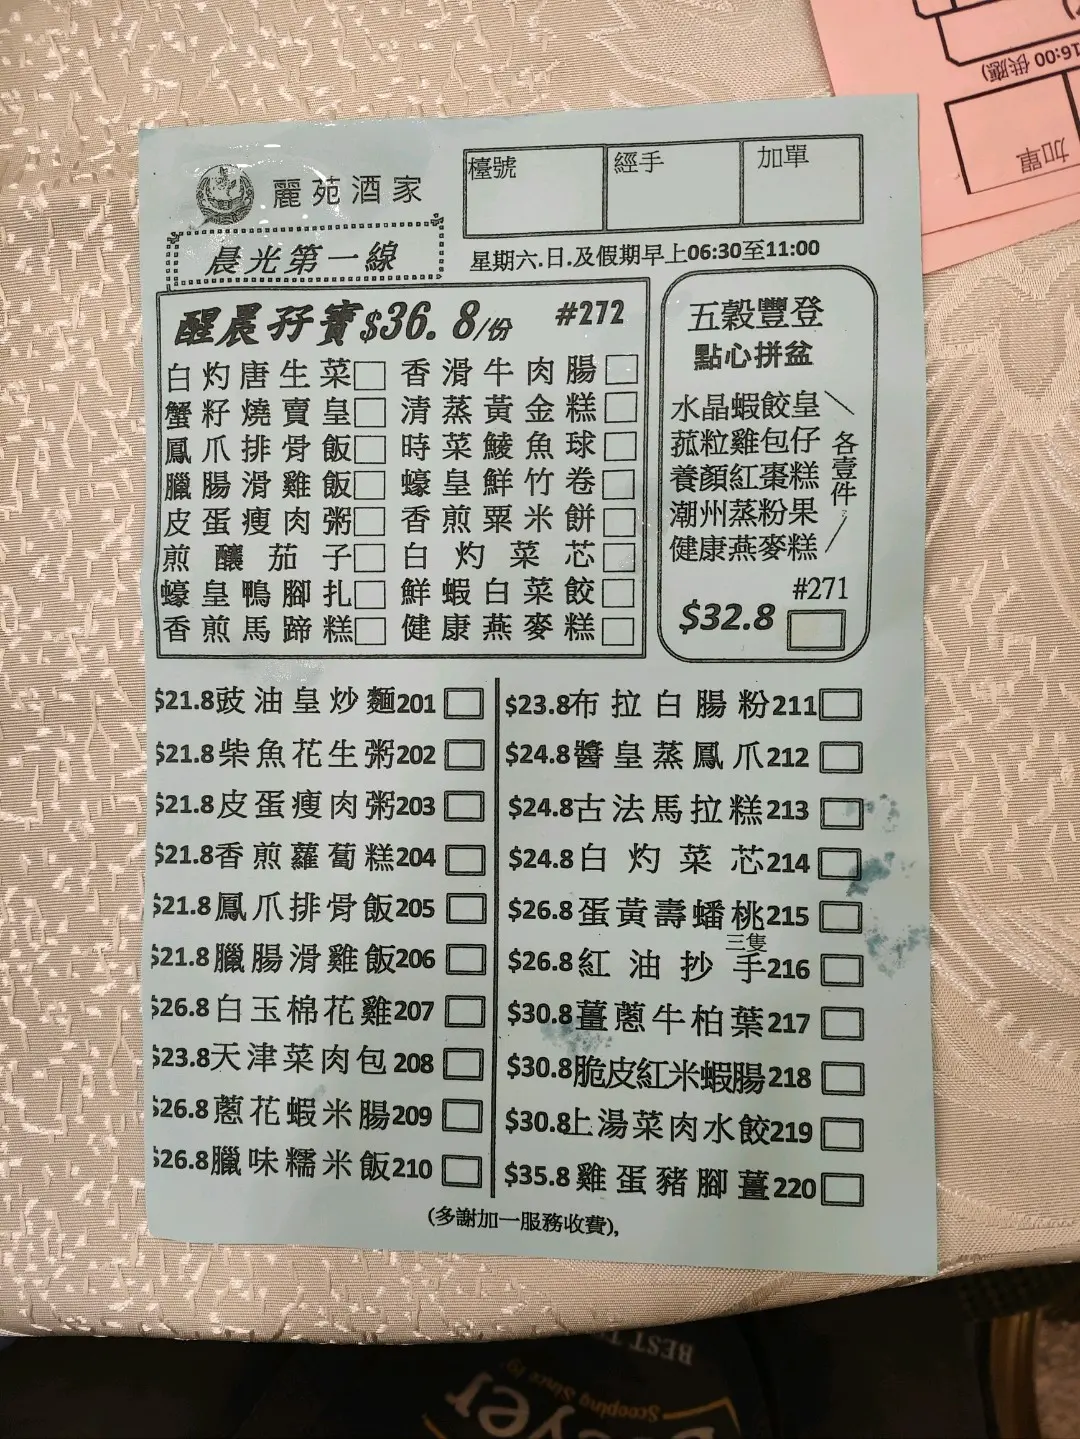 麗苑酒家
檯號
經手
加單
晨光第一線
星期六.日.及假期早上06:30至11:00
醒晨孖寶$36.8/份 #272
白灼唐生菜 香滑牛肉腸
蟹籽燒賣皇 清蒸黃金糕
鳳爪排骨飯 時菜鯪魚球
臘腸滑雞飯 蠔皇鮮竹卷
皮蛋瘦肉粥 香煎粟米餅
煎釀茄子 白灼菜芯
蠔皇鴨腳扎 鮮蝦白菜餃
香煎馬蹄糕 健康燕麥糕
五穀豐登
點心拼盆
水晶蝦餃皇
菰粒雞包仔
養顏紅棗糕
潮州蒸粉果
健康燕麥糕
各壹件
#271
$32.8
$21.8豉油皇炒麵201
$21.8柴魚花生粥202
$21.8皮蛋瘦肉粥203
$21.8香煎蘿蔔糕204
$21.8鳳爪排骨飯205
$21.8臘腸滑雞飯206
$26.8白玉棉花雞207
$23.8天津菜肉包208
$26.8蔥花蝦米腸209
$26.8臘味糯米飯210
$23.8布拉白腸粉211
$24.8醬皇蒸鳳爪212
$24.8古法馬拉糕213
$24.8白灼菜芯214
$26.8蛋黃壽蟠桃215
三隻
$26.8紅油抄手216
$30.8薑蔥牛柏葉217
$30.8脆皮紅米蝦腸218
$30.8上湯菜肉水餃219
$35.8雞蛋豬腳薑220
(多謝加一服務收費),
16:00 供應)
加單
BEST T
Scooping Since
eyer